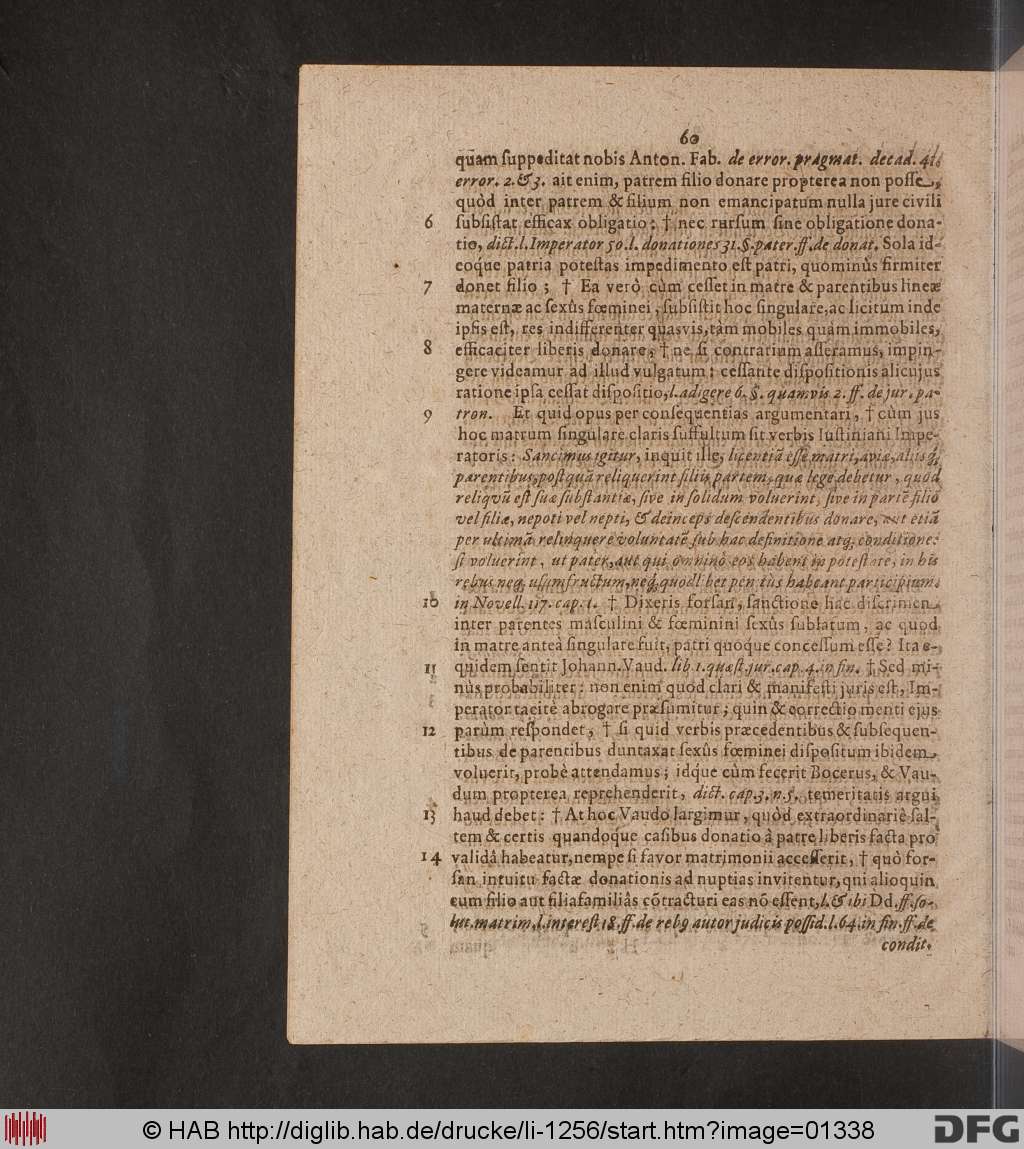 60
quàm suppeditat nobis Anton. Fab. de error. pragmat. decad. 41.
error. 2. & 3. ait enim, patrem filio donare propterea non posse,
quòd inter patrem & filium non emancipatum nulla jure civili
6 subsistat efficax obligatio: † nec rursum sine obligatione dona-
tio, dict. l. Imperator 50. l. donationes 31. §. pater. ff. de donat. Sola id-
eoq́ue patria potestas impedimento est patri, quominùs firmiter
7 donet filio; † Ea verò cùm cesset in matre & parentibus lineæ
maternæ ac sexûs fœminei, subsistit hoc singulare, ac licitum inde
ipsis est, res indifferenter quasvis, tàm mobiles quàm immobiles,
8 efficaciter liberis donare, † ne si contrarium asseramus, impin-
gere videamur ad illud vulgatum: cessante dispositionis alicujus
ratione ipsa cessat dispositio, l. adigere 6. §. quamvis 2. ff. de jur. pa-
9 tron. Et quid opus per consequentias argumentari, † cùm jus
hoc matrum singulare claris suffultum sit verbis Iustiniani Impe-
ratoris: Sancimus igitur, inquit ille, licentiã esse matri, aviæ, aliisq́;
parentibus, postquã reliquerint filiis partem, quæ lege debetur, quod
reliqvũ est suæ substantiæ, sive in solidum voluerint, sive in partẽ filio
vel filiæ, nepoti vel nepti, & deinceps descendentibus donare, aut etiã
per ultimã relinquere voluntatẽ sub hac definitione atq; conditione:
si voluerint, ut pater, aut qui omninò eos habent in potestate, in his
rebus neq; usumfructum, neq; quodlibet penitùs habeant participium:
10 in Novell. 117. cap. 1. † Dixeris forsan, sanctione hac discrimen
inter parentes masculini & fœminini sexûs sublatum, ac quod
in matre anteà singulare fuit, patri quoque concessum esse? Ita e-
11 quidem sentit Johann. Vaud. lib. 1. quæst. jur. cap. 4. in fin. † Sed mi-
nùs probabiliter: non enim quod clari & manifesti juris est, Im-
perator tacitè abrogare præsumitur; quin & correctio menti ejus
12 parùm respondet, † si quid verbis præcedentibus & subsequen-
tibus de parentibus duntaxat sexûs fœminei dispositum ibidem
voluerit, probè attendamus; idq́ue cùm fecerit Bocerus, & Vau-
dum propterea reprehenderit, dict. cap. 3. n. 5. temeritatis argui
13 haud debet: † At hoc Vaudo largimur, quòd extraordinariè sal-
tem & certis quandoq́ue casibus donatio â patre liberis facta pro
14 validâ habeatur, nempe si favor matrimonii accesserit, † quò for-
san intuitu factæ donationis ad nuptias invitentur, qui alioquin
cum filio aut filiafamiliâs cõtracturi eas nõ essent, l. & ibi Dd. ff. so-
lut. matrim. l. interest 18. ff. de rebꝰ autor judicis possid. l. 64. in fin. ff. de
condit.
© HAB http://diglib.hab.de/drucke/li-1256/start.htm?image=01338
DFG